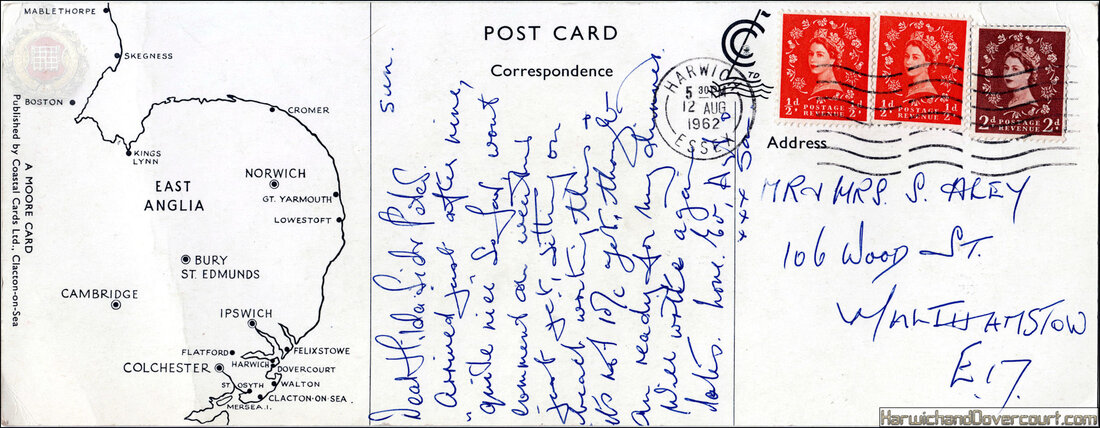 MABLETHORPE
SKEGNESS
BOSTON
CROMER
KINGS
LYNN
EAST
ANGLIA
NORWICH
GT. YARMOUTH
LOWESTOFT
BURY
ST. EDMUNDS
CAMBRIDGE
IPSWICH
FLATFORD
FELIXSTOWE
HARWICH
DOVERCOURT
COLCHESTER
WALTON
ST. OSYTH
CLACTON-ON-SEA
MERSEA. I.
A MOORE CARD
Published by Coastal Cards Ltd., Clacton-on-Sea
POST CARD
Correspondence
Sun.
Dear Hilda Sid & Pete
Arrived just after nine,
quite nice so far, wont
comment on weather
just yet, sitting on
beach writing this &
it's not 10/c yet, though
am ready for my
Will write again
love.
HARWICH
5 30 PM
12 AUG
1962
ESSEX
½d ½d
POSTAGE
REVENUE
½d ½d
POSTAGE
REVENUE
2d 2d
POSTAGE
REVENUE
Address
MR & MRS. S. ALEY
106 WOOD ST.
WALTHAMSTOW
E.17.
HarwichandDovercourt.com